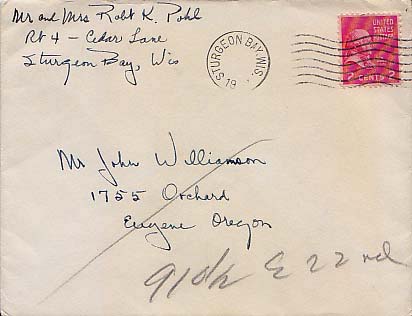 Mr and Mrs Robt K. Pohl
Rt 4 - Cedar Lane
Sturgeon Bay, Wis
STURGEON BAY, WIS.
19
UNITED STATES
2 CENTS 2
Mr John Williamson
1755 Orchard
Eugene Oregon
910½ E 22nd